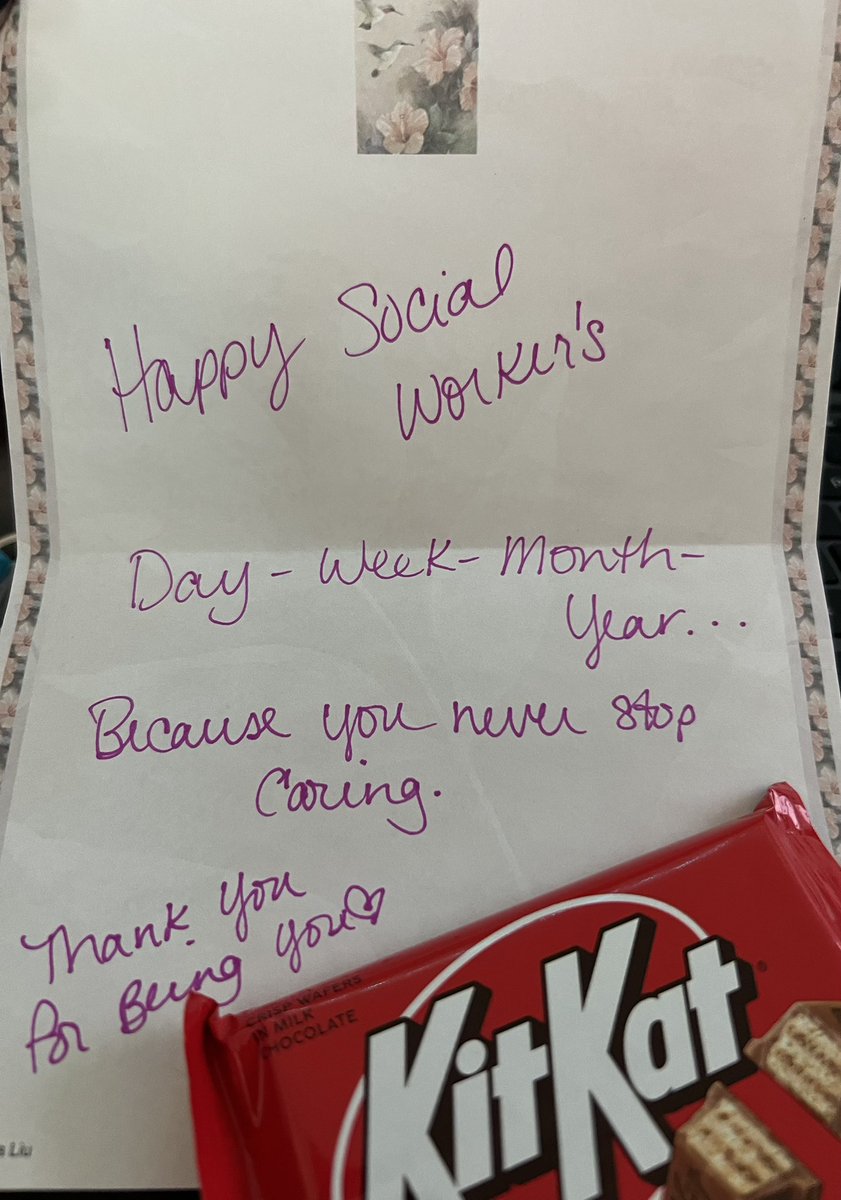 Happy Social
Worker's
Day - Week - Month -
Year...
Because you never stop
Caring.
Thank you
for Being you♡
CRISP WAFERS
IN MILK
CHOCOLATE
KitKat
®
Liu